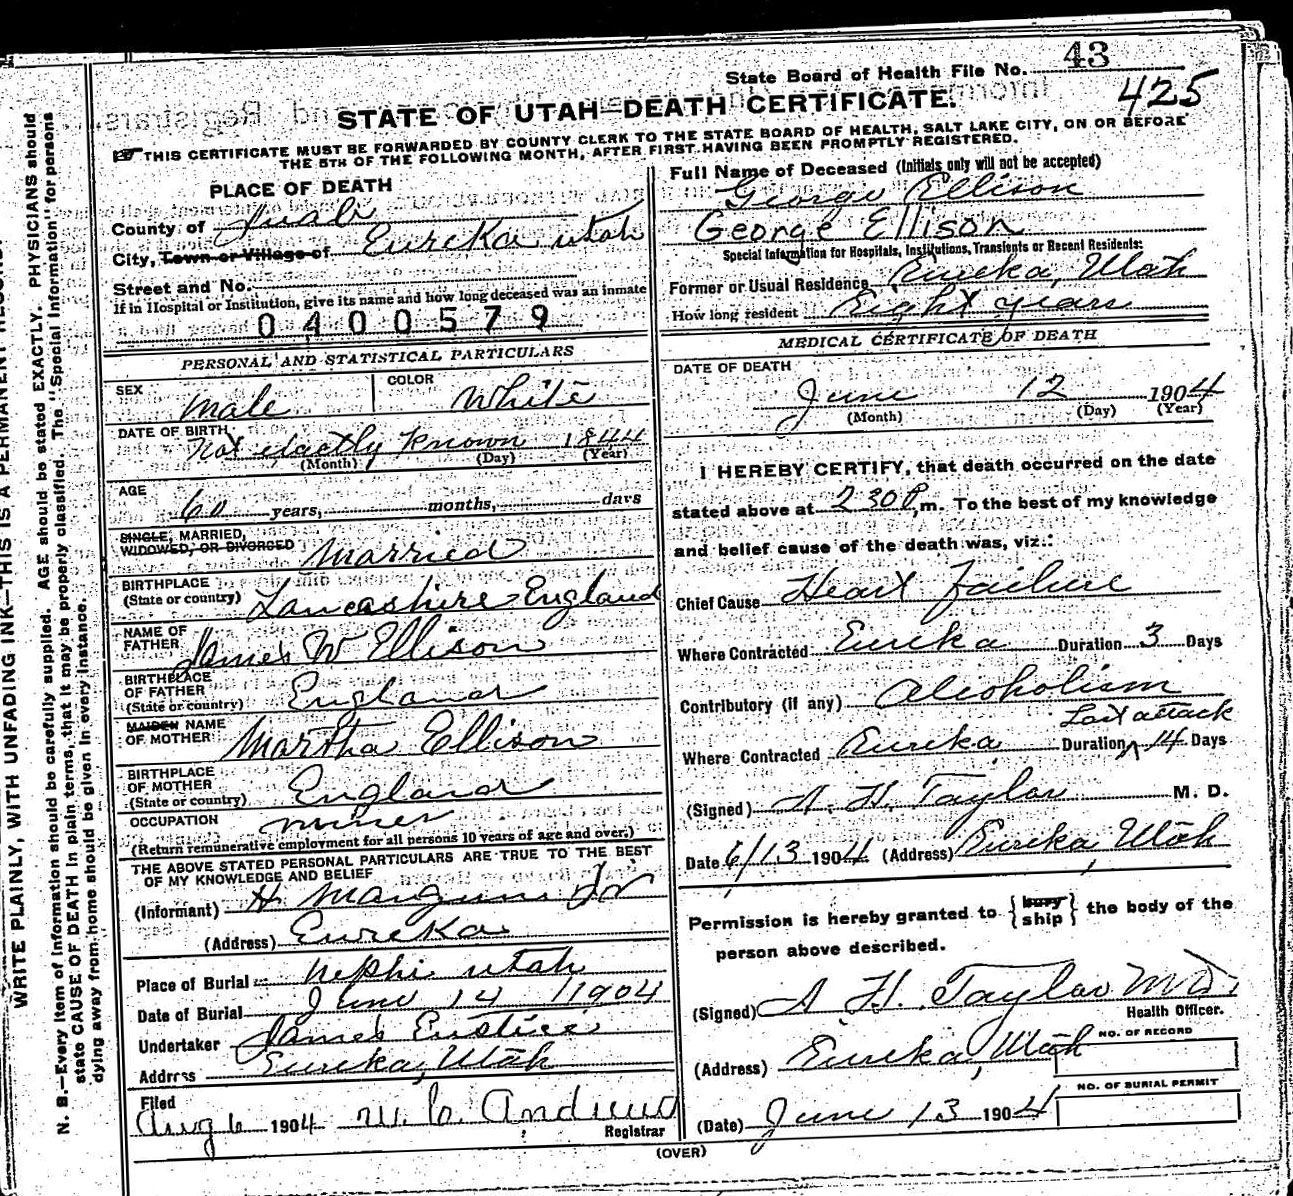 WRITE PLAINLY, WITH UNFADING INK—THIS IS A PERMANENT
N. B.—Every item of information should be carefully supplied. AGE should be stated EXACTLY. PHYSICIANS should
state CAUSE OF DEATH in plain terms, that it may be properly classified. The "Special Information" for persons
dying away from home should be given in every instance.
State Board of Health File No. 43
425
STATE OF UTAH—DEATH CERTIFICATE.
THIS CERTIFICATE MUST BE FORWARDED BY COUNTY CLERK TO THE STATE BOARD OF HEALTH, SALT LAKE CITY, ON OR BEFORE
THE 5TH OF THE FOLLOWING MONTH, AFTER FIRST HAVING BEEN PROMPTLY REGISTERED.
PLACE OF DEATH
County of Juab
City, Town or Village of Eureka Utah
Street and No.
If in Hospital or Institution, give its name and how long deceased was an inmate
0400579
PERSONAL AND STATISTICAL PARTICULARS
SEX Male COLOR White
DATE OF BIRTH Not exactly known 1844
(Month) (Day) (Year)
AGE 60 years, months, days
SINGLE, MARRIED,
WIDOWED, OR DIVORCED Married
BIRTHPLACE
(State or country) Lancashire England
NAME OF
FATHER James W Ellison
BIRTHPLACE
OF FATHER
(State or country) England
MAIDEN NAME
OF MOTHER Martha Ellison
BIRTHPLACE
OF MOTHER
(State or country) England
OCCUPATION miner
(Return remunerative employment for all persons 10 years of age and over.)
THE ABOVE STATED PERSONAL PARTICULARS ARE TRUE TO THE BEST
OF MY KNOWLEDGE AND BELIEF
(Informant) H Mangum Jr
(Address) Eureka
Place of Burial Nephi Utah
Date of Burial June 14 1904
Undertaker James Eustice
Address Eureka, Utah
Filed
Aug 6 1904 W. C. Andrews
Registrar
Full Name of Deceased (Initials only will not be accepted)
George Ellison
George Ellison
Special Information for Hospitals, Institutions, Transients or Recent Residents:
Former or Usual Residence Eureka, Utah
How long resident Eight years
MEDICAL CERTIFICATE OF DEATH
DATE OF DEATH
June 12 1904
(Month) (Day) (Year)
I HEREBY CERTIFY, that death occurred on the date
stated above at 2 30 P.m. To the best of my knowledge
and belief cause of the death was, viz.:
Chief Cause Heart Failure
Where Contracted Eureka Duration 3 Days
Contributory (if any) Alcoholism
Last attack
Where Contracted Eureka Duration 14 Days
(Signed) A. H. Taylor M. D.
Date 6/13 1904 (Address) Eureka, Utah
Permission is hereby granted to { bury ship } the body of the
person above described.
(Signed) A. H. Taylor MD.
Health Officer.
(Address) Eureka, Utah
NO. OF RECORD
NO. OF BURIAL PERMIT
(Date) June 13 1904
(OVER)